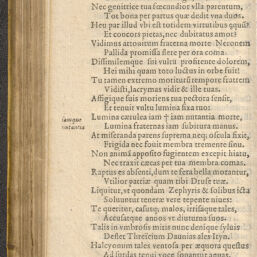 Nec genitrice tua fœcundior vlla parentum,
Tot bona per partus quæ dedit vna duos.
Heu par illud vbi est totidem virtutibus æquũ?
Et concors pietas, nec dubitatus amor?
Vidimus attonitum fraterna morte Neronem
Pallida promissa flere per ora coma.
Dissimilemque sui vultu profitente dolorem,
Hei mihi quam toto luctus in orbe fuit!
Tu tamen extremo moriturũ tempore fratrem
Vidisti, lacrymas vidit & ille tuas.
Affigique suis moriens tua pectora sensit,
Et tenuit vultu lumina fixa tuo:
Lumina cærulea iam † iam nutantia morte,
Lumina fraternas iam subitura manus.
At miseranda parens suprema neq; oscula fixit,
Frigida nec fouit membra tremente sinu.
Non animã apposito fugientem excepit hiatu,
Nec traxit cæsas per tua membra comas.
Raptus es absenti, dum te fera bella morantur,
Vtilior patriæ quam tibi Druse tuæ.
Liquitur, vt quondam Zephyris & solibus icta
Soluuntur teneræ vere tepente niues:
Te queritur, casusq; malos, irrisaque tales,
Accusatque annos vt diuturna suos.
Talis in vmbrosis mitis nunc denique syluis
Deflet Threïcium Daunias ales Ityn.
Halcyonum tales ventosa per æquora questus
Ad surdas tenui voce sonantur aquas.